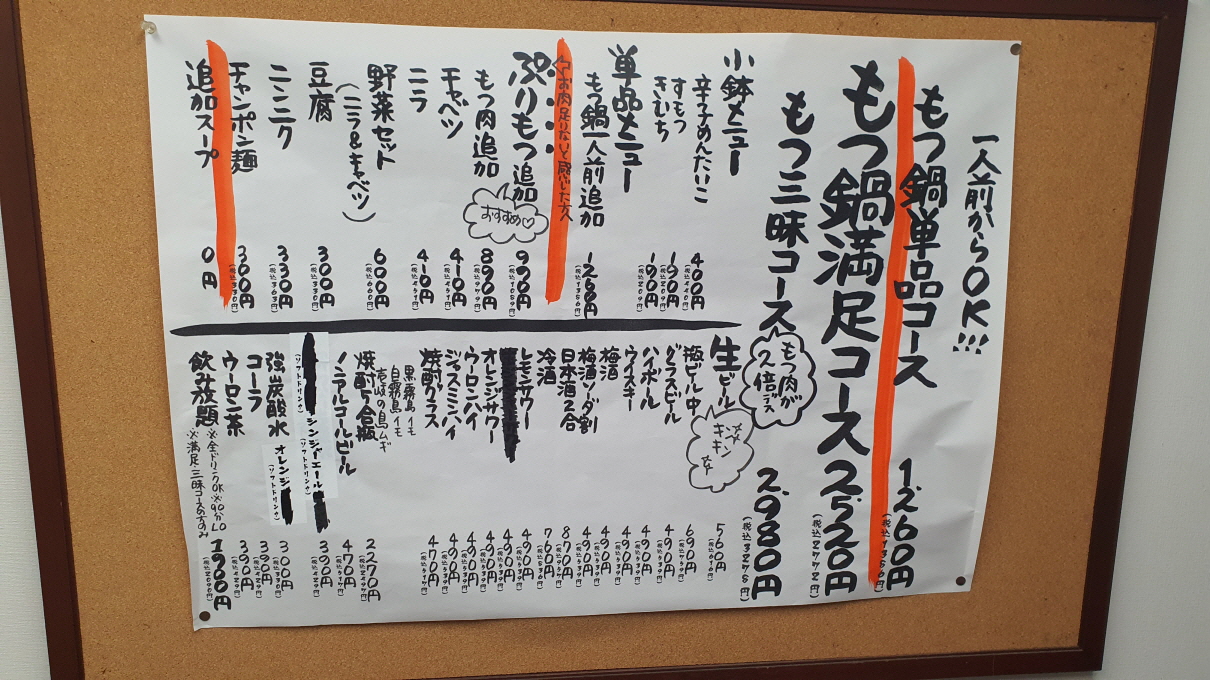 一人前からOK!!!
もつ鍋単品コース 1,260円
もつ鍋満足コース 2,520円
(税込2772円)
もつ三昧コース 2,980円
(税込3278円)
もつ肉が2倍デス
小鉢メニュー
辛子めんたいこ 400円
(税込440円)
すもつ 190円
きむち 190円
単品メニュー
もつ鍋一人前追加 1260円
お肉足りないと感じた方へ
ぷりもつ追加 990円
おすすめ♡
もつ肉追加 890円
(税込979円)
キャベツ 410円
(税込451円)
ニラ 410円
(税込451円)
野菜セット 600円
(税込660円)
(ニラ&キャベツ)
豆腐 300円
(税込330円)
ニンニク 330円
(税込363円)
チャンポン麺 300円
(税込330円)
追加スープ 0円
生ビール 560円
(税込616円)
キンキン
瓶ビール中 690円
グラスビール 490円
ハイボール 490円
ウイスキー 490円
梅酒 490円
梅酒ソーダ割 490円
日本酒2合 870円
冷酒 760円
レモンサワー 490円
オレンジサワー 490円
ウーロンハイ 490円
ジャスミンハイ 490円
焼酎グラス 470円
黒霧島 イモ
白霧島 イモ
壱岐の島 ムギ
焼酎5合瓶 2270円
ノンアルコールビール 470円
ジンジャーエール 390円
(ソフトドリンク)
(ソフトドリンク)
オレンジ
(ソフトドリンク)
強炭酸水 300円
コーラ 390円
ウーロン茶 390円
飲み放題 1900円
(税込2090円)
※全ドリンクOK※90分LO
※満足三昧コースの方のみ